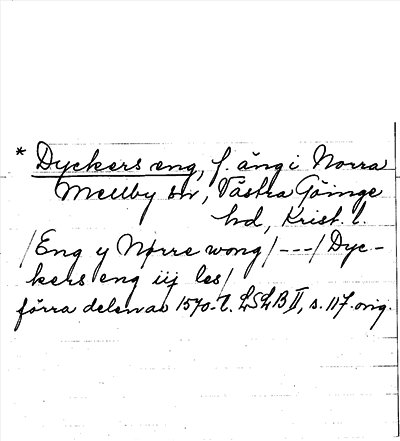 * Dyckers eng, f. äng i Norra
Mellby sn, Västra Göinge
hd, Krist. l.
/Eng y Nørre wong/---/Dyc-
kers eng iij les/
förra delen av 1570-t. LSLB II, s. 117. orig.